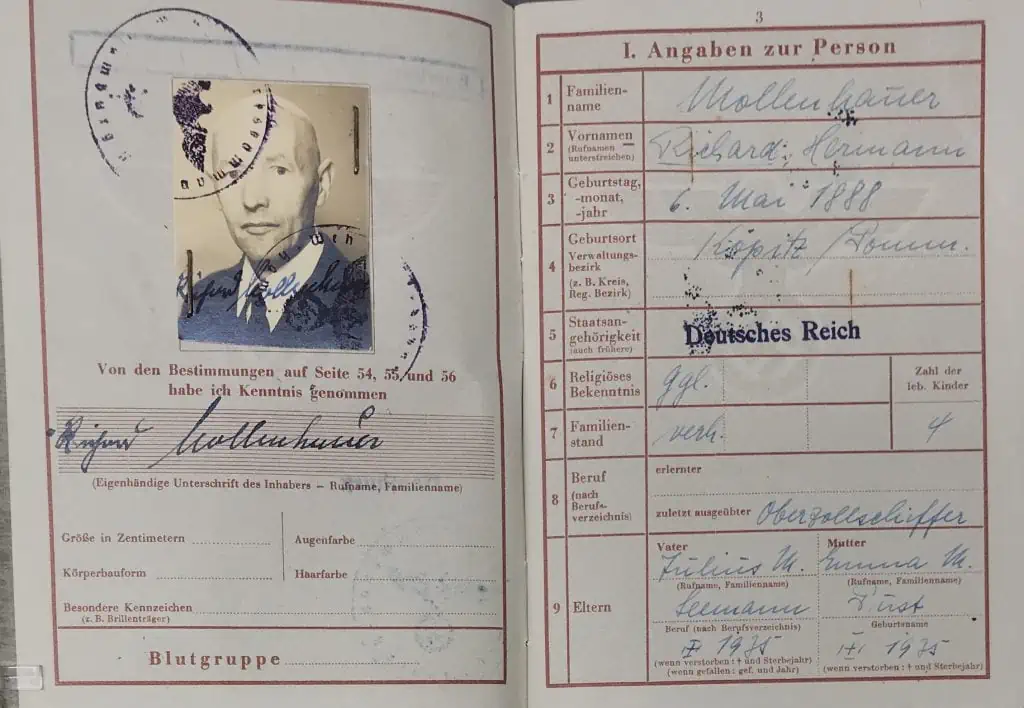 Von den Bestimmungen auf Seite 54, 55 und 56
habe ich Kenntnis genommen
Richard Mollenhauer
(Eigenhändige Unterschrift des Inhabers – Rufname, Familienname)
Größe in Zentimetern
Augenfarbe
Körperbauform
Haarfarbe
Besondere Kennzeichen
(z. B. Brillenträger)
Blutgruppe
3
I. Angaben zur Person
1 Familien-
name
Mollenhauer
2 Vornamen
(Rufnamen
unterstreichen)
Richard, Hermann
3 Geburtstag,
-monat,
-jahr
6. Mai 1888
4 Geburtsort
Verwaltungs-
bezirk
(z. B. Kreis,
Reg. Bezirk)
Köpitz /Pomm.
5 Staatsan-
gehörigkeit
(auch frühere)
Deutsches Reich
6 Religiöses
Bekenntnis
ggl.
Zahl der
leb. Kinder
7 Familien-
stand
verh.
4
8 Beruf
(nach
Berufs-
verzeichnis)
erlernter
zuletzt ausgeübter Oberzollschiffer
9 Eltern
Vater
Julius M.
(Rufname, Familienname)
Seemann
Beruf (nach Berufsverzeichnis)
1935
(wenn verstorben: † und Sterbejahr)
(wenn gefallen: gef. und Jahr)
Mutter
Emma M.
(Rufname, Familienname)
Pust
Geburtsname
1935
(wenn verstorben: † und Sterbejahr)